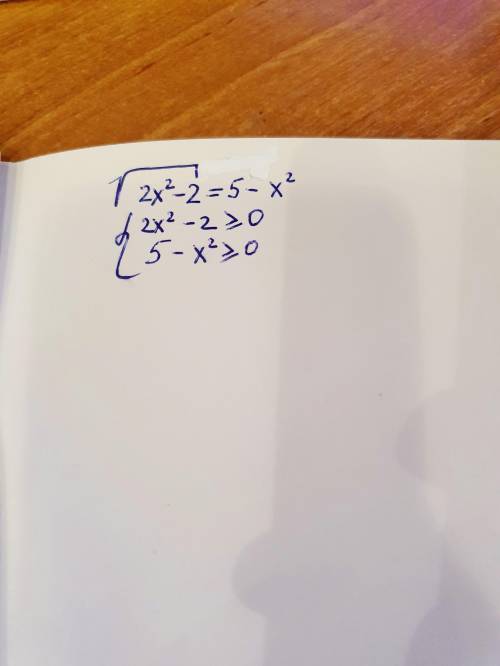 √(2x²-2) = 5 - x²
{ 2x² - 2 ≥ 0
5 - x² ≥ 0